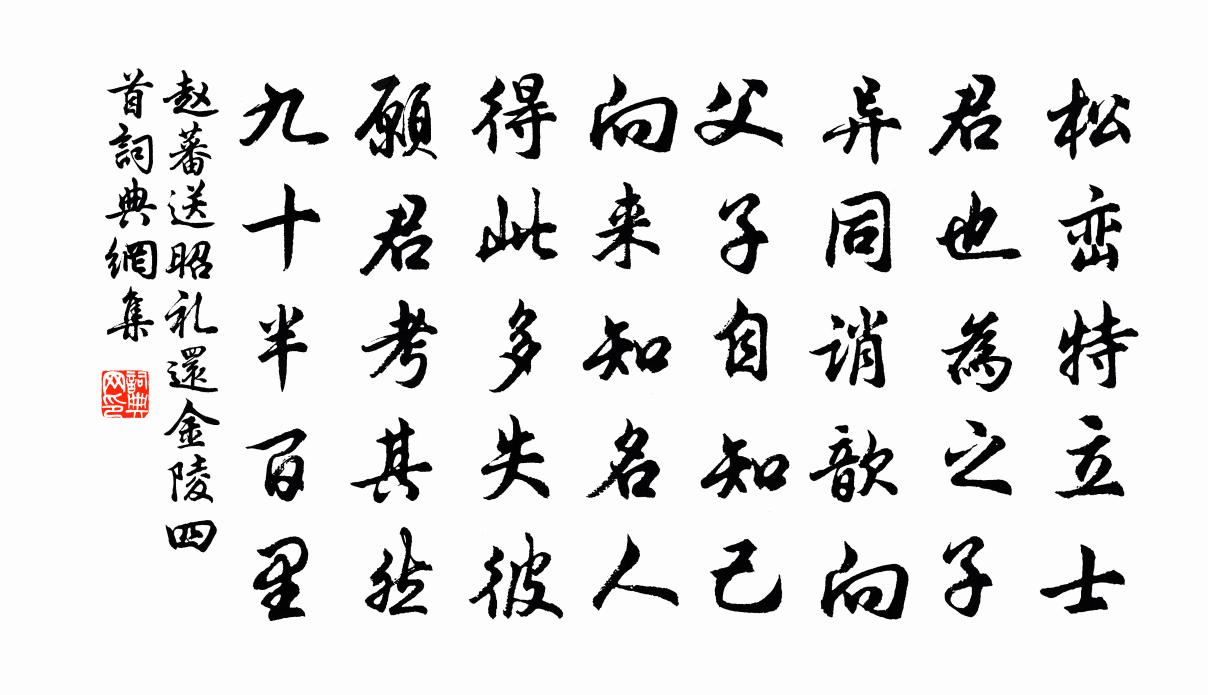 松峦特立士
君也為之子
异同诮歆向
父子自知己
向来知名人
得此多失彼
願君考其然
九十半百里
赵蕃送昭礼還金陵四
首詞典網集
詞典
网印